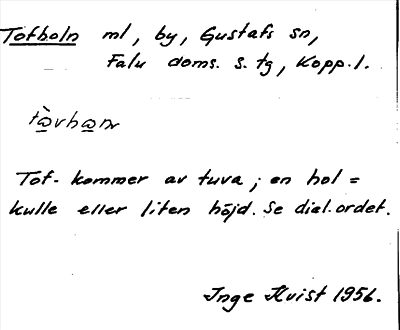 Tofholn ml, by, Gustafs sn,
Falu doms. s. tg, Kopp. l.
Tof- kommer av tuva; en hol =
kulle eller liten höjd. Se dial.ordet.
Inge Kvist 1956.